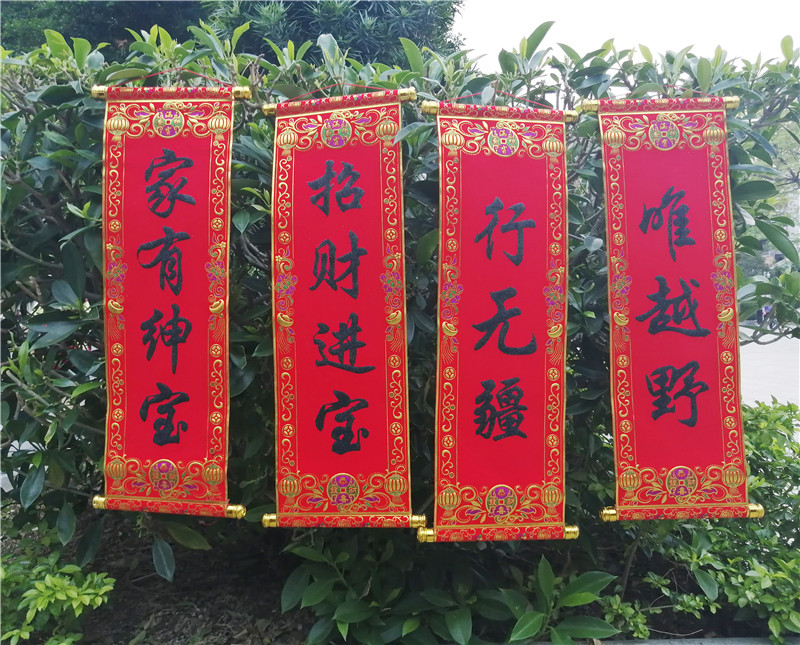 家有绅宝
招财进宝
行无疆
唯越野